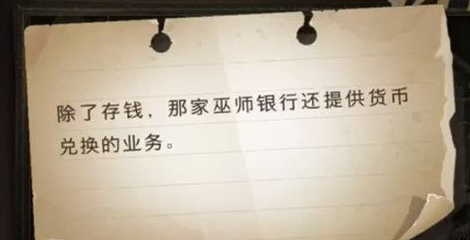 除了存钱，那家巫师银行还提供货币
兑换的业务。